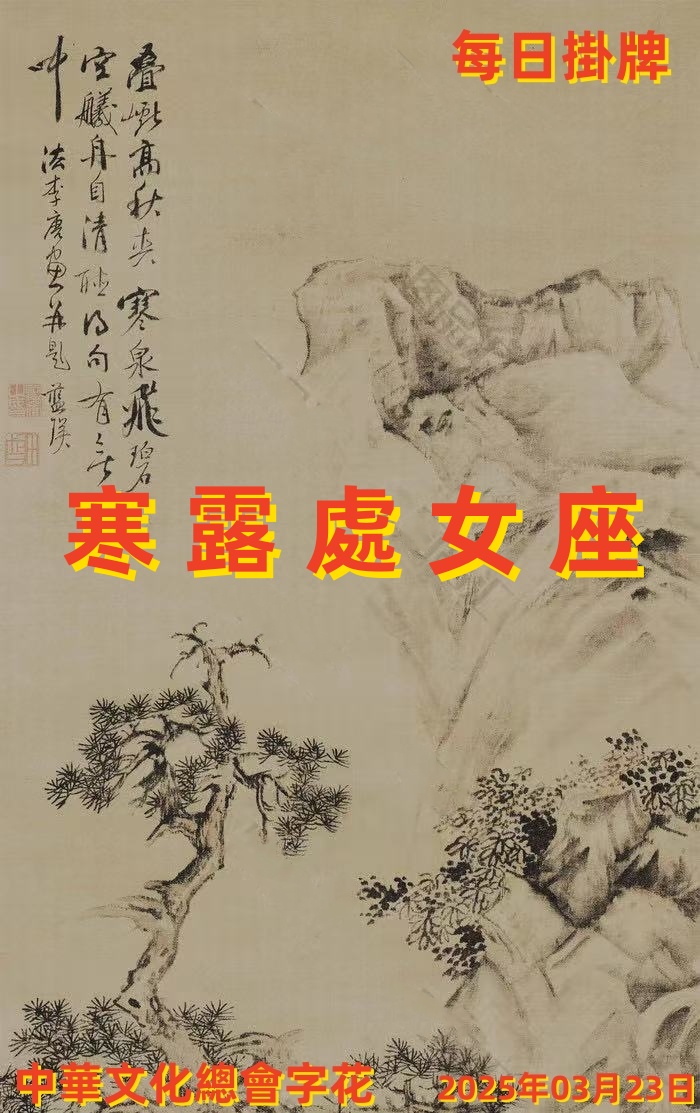 每日掛牌
疊巘高秋爽寒泉飛碧
空艤舟自清聽得句有誰
叶
法李唐畫并題藍瑛
寒露處女座
中華文化總會字花
2025年03月23日